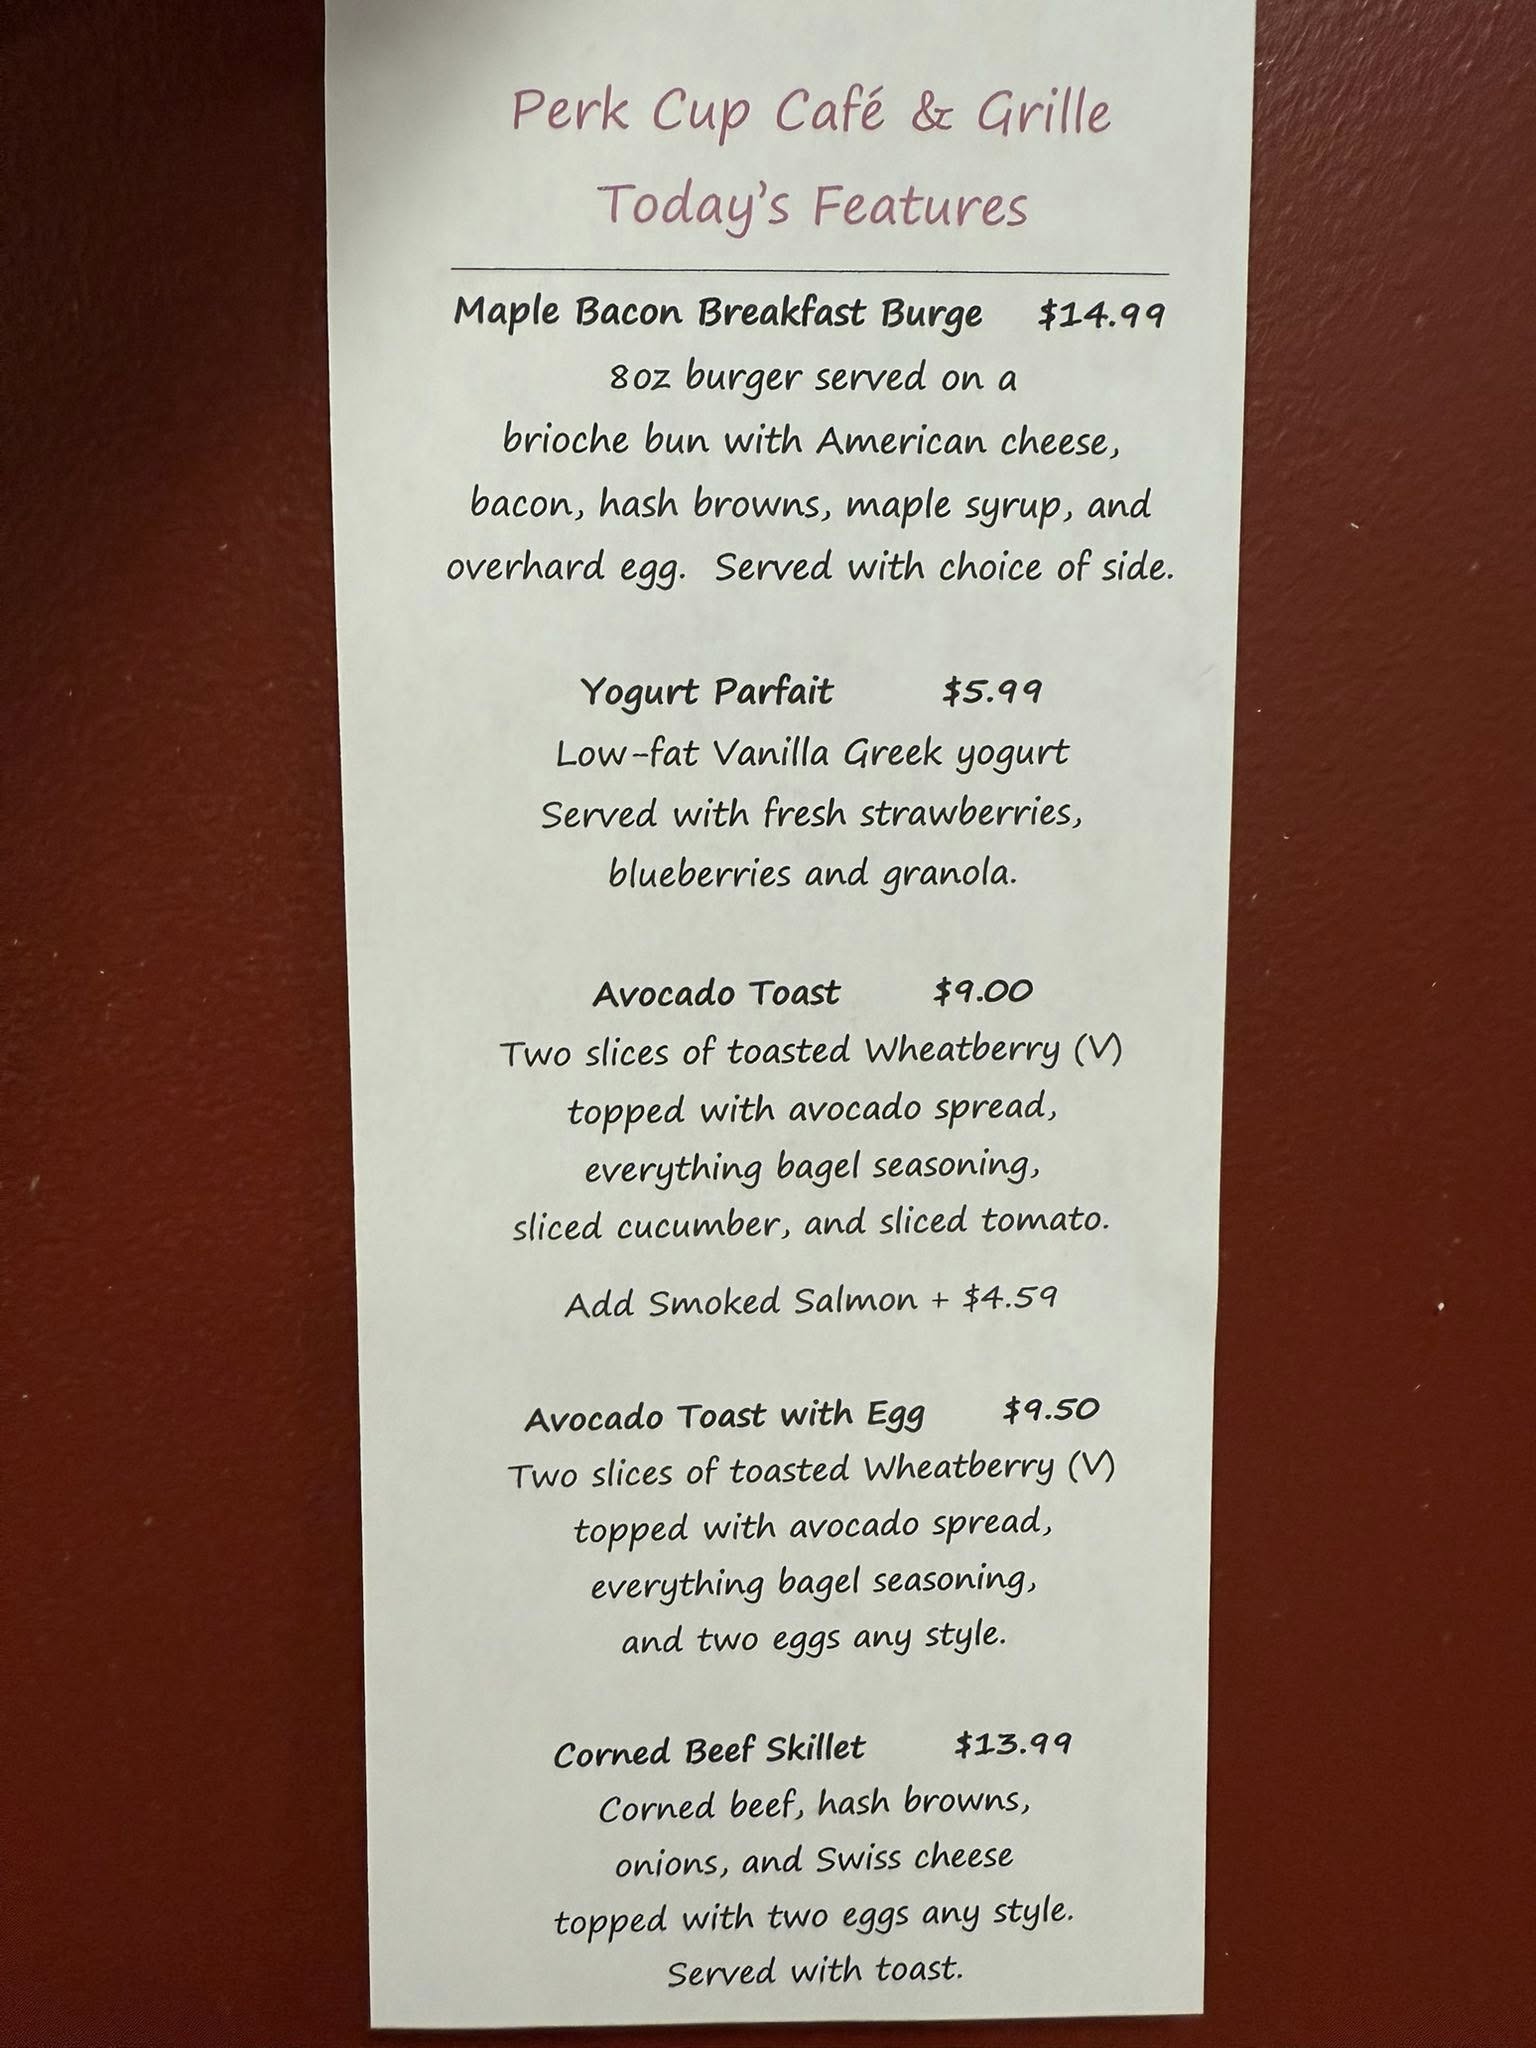 Perk Cup Café & Grille
Today's Features
Maple Bacon Breakfast Burge $14.99
8oz burger served on a
brioche bun with American cheese,
bacon, hash browns, maple syrup, and
overhard egg. Served with choice of side.
Yogurt Parfait $5.99
Low-fat Vanilla Greek yogurt
Served with fresh strawberries,
blueberries and granola.
Avocado Toast $9.00
Two slices of toasted Wheatberry (V)
topped with avocado spread,
everything bagel seasoning,
sliced cucumber, and sliced tomato.
Add Smoked Salmon + $4.59
Avocado Toast with Egg $9.50
Two slices of toasted Wheatberry (V)
topped with avocado spread,
everything bagel seasoning,
and two eggs any style.
Corned Beef Skillet $13.99
Corned beef, hash browns,
onions, and Swiss cheese
topped with two eggs any style.
Served with toast.